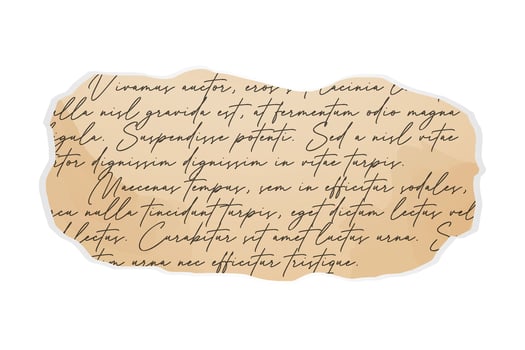 Vivamus auctor, eros
lla nisl gravida est, at fermentum odio magna
igula. Suspendisse potenti. Sed a nisl vitae
tor dignissim dignissim in vitae turpis.
Maecenas tempus, sem in efficitur sodales,
cu nulla tincidunt turpis, eget dictum lectus vel
lectus. Curabitur sit amet luctus urna. S
urna nec efficitur tristique.